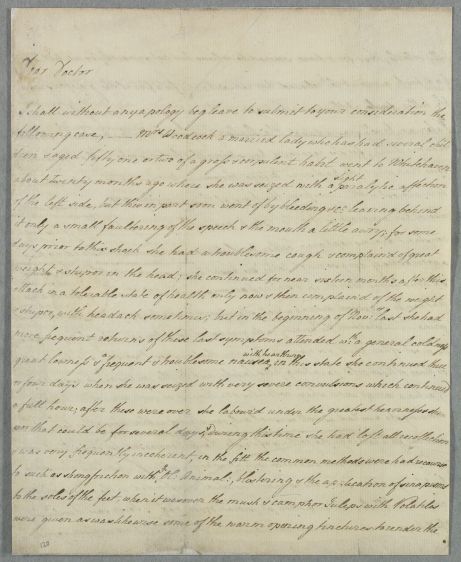 Dear Doctor
I shall without any apology beg leave to submit to your consideration the
following case, Mrs a married lady who has had several chil
dren aged fifty one or two of a gross corpulent habit went to Whitehaven
about twenty months ago where she was seized with a slight paralytic affection
of the left side, but this in part soon went of by bleeding &c leaving behind
it only a small faultering of the speech & the mouth a little awry; for some
days prior to this shock she had a troublesome cough & complain'd of great
weight & stupor in the head; she continued for near sixteen months after this
attack in a tolerable state of health only now & then complain'd of the weight
& stupor, with headach sometimes; but in the beginning of Novr last she had
more frequent returns of these last symptoms attended wth a general
great lowness & frequent & troublesome nausea with heartburn, in this state she continued three
or four days when she was seized with very severe convulsions which continued
a full hour; after these were over she labour'd under the greatest heaviness & stu
por that could be for several days, During this time she had lost all recollection
& was very frequently incoherent, in the fitt the common methods were had recourse
to such as strong friction with Animal, blistering & the application of sinapisms
to the soles of the feet when it was over the musk & camphor Juleps with Volatiles
were given as was likewise some of the warm opening tinctures to render the
120